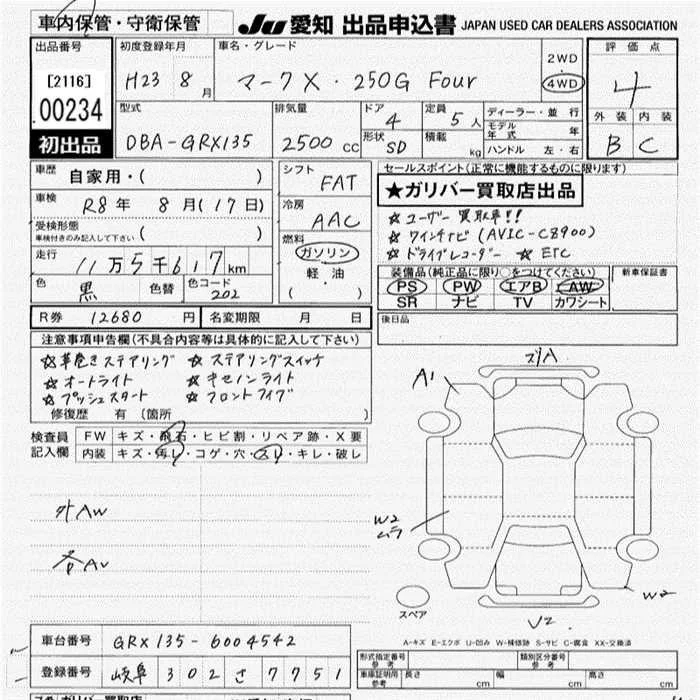 車内保管・守衛保管
JU 愛知 出品申込書 JAPAN USED CAR DEALERS ASSOCIATION
出品番号
[2116]
00234
初出品
初度登録年月
H23 8月
車名・グレード
マークX・250G Four
2WD
4WD
評価点
4
外装 内装
B C
型式
DBA-GRX135
排気量
2500 cc
ドア
4
形状
SD
定員
5人
積載
kg
ディーラー・並行
モデル年式 年
ハンドル 左・右
車歴
自家用・( )
車検
R8年 8月(17日)
受検形態
車検付きのみ記入して下さい ( )
走行
11万5千617km
色
黒
色替
色コード
202
シフト
FAT
冷房
AAC
燃料
ガソリン
軽油
( )
セールスポイント(正常に機能するものに限ります)
★ガリバー買取店出品
☆ユーザー買取車!!
☆ワインチナビ(AVIC-CZ900)
☆ドライブレコーダー ☆ETC
装備品(純正品に限り○をつけてください)
PS PW エアB AW
SR ナビ TV カワシート
新車保証書
R券 12680円
名変期限 月 日
後日品
注意事項申告欄(不具合内容等は具体的に記入して下さい)
☆革巻きステアリング ☆ステアリングスイッチ
☆オートライト ☆キセノンライト
☆プッシュスタート ☆フロントフォグ
修復歴 有(箇所 )
検査員記入欄
FW キズ・飛石・ヒビ割・リペア跡・X要
内装 キズ・汚レ・コゲ・穴・スレ・キレ・破レ
外AW
各AU
A1
W2
ムラ
W2
U2
スペア
A-キズ E-エクボ U-凹み W-補修跡 S-サビ C-腐食 XX-交換済
車台番号
GRX135-6004542
登録番号
岐阜 302 さ 7751
形式指定番号
参考
類別区分番号
参考
車庫証明用
参考
長さ cm
幅 cm
高さ cm